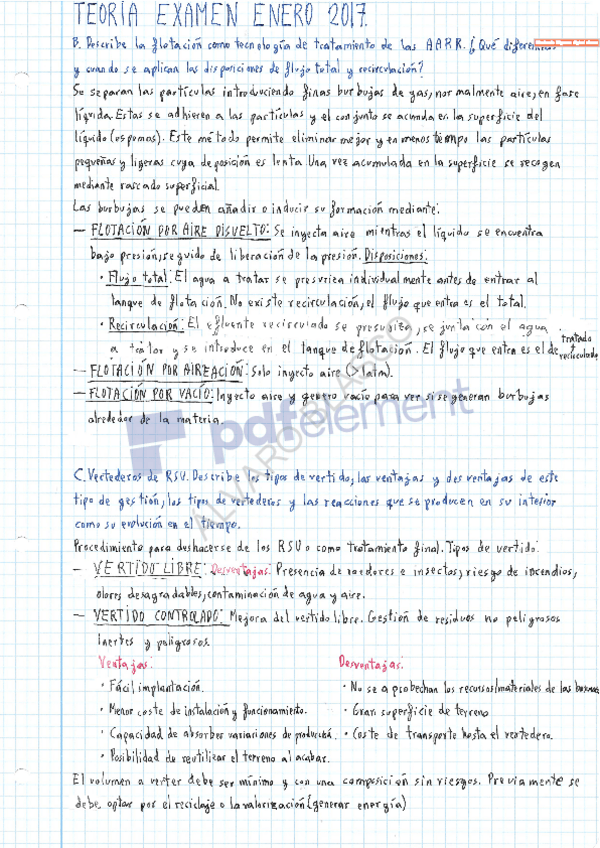 TEORÍA EXAMEN ENERO 2017.
B. Describe la flotación como tecnología de tratamiento de las AARR. ¿Qué diferencias
y cuando se aplican las disposiciones de flujo total y recirculación?
Se separan las partículas introduciendo finas burbujas de gas, normalmente aire, en fase
líquida. Estas se adhieren a las partículas y el conjunto se acumula en la superficie del
líquido (espumas). Este método permite eliminar mejor y en menos tiempo las partículas
pequeñas y ligeras cuya deposición es lenta. Una vez acumulada en la superficie se recogen
mediante rascado superficial.
Las burbujas se pueden añadir o inducir su formación mediante:
— FLOTACIÓN POR AIRE DISUELTO: Se inyecta aire mientras el líquido se encuentra
bajo presión, seguido de liberación de la presión. Disposiciones:
· Flujo total: El agua a tratar se presuriza individualmente antes de entrar al
tanque de flotación. No existe recirculación, el flujo que entra es el total.
· Recirculación: El efluente recirculado se presuriza, se junta con el agua
a tratar y se introduce en el tanque de flotación. El flujo que entra es el de tratado + recirculado
— FLOTACIÓN POR AIREACIÓN: Solo inyecto aire (>1atm).
— FLOTACIÓN POR VACÍO: Inyecto aire y genero vacío para ver si se generan burbujas
alrededor de la materia.
pdfelement
ÁLVARO BLASCO
C. Vertederos de RSU. Describe los tipos de vertido, las ventajas y desventajas de este
tipo de gestión, los tipos de vertederos y las reacciones que se producen en su interior
como su evolución en el tiempo.
Procedimiento para deshacerse de los RSU o como tratamiento final. Tipos de vertido:
— VERTIDO LIBRE: Desventajas: Presencia de roedores e insectos, riesgo de incendios,
olores desagradables, contaminación de agua y aire.
— VERTIDO CONTROLADO: Mejora del vertido libre. Gestión de residuos no peligrosos
inertes y peligrosos.
Ventajas: Desventajas:
· Fácil implantación. · No se aprobechan los recursos/materiales de las basuras
· Menor coste de instalación y funcionamiento. · Gran superficie de terreno
· Capacidad de absorber variaciones de producción. · Coste de transporte hasta el vertedero.
· Posibilidad de reutilizar el terreno al acabar.
El volumen a verter debe ser mínimo y con una composición sin riesgos. Previamente se
debe optar por el reciclaje o la valorización (generar energía)